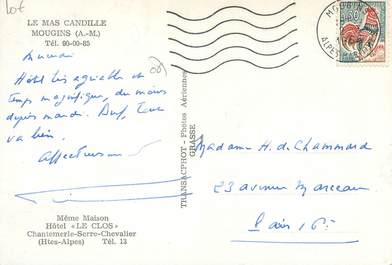 Lot
LE MAS CANDILLE
MOUGINS (A.-M.)
Tél. 90-00-85
Hôtel très agréable et
temps magnifique, du moins
depuis mardi. Bref, tout
va bien.
Affectueusement
Même Maison
Hôtel «LE CLOS»
Chantemerle-Serre-Chevalier
(Htes-Alpes) Tél. 13
TRANSACPHOT - Photos Aériennes
GRASSE
MOUGINS
ALPES
0,30
Madame H. de Chammard
23 avenue Marceau
Paris 16e